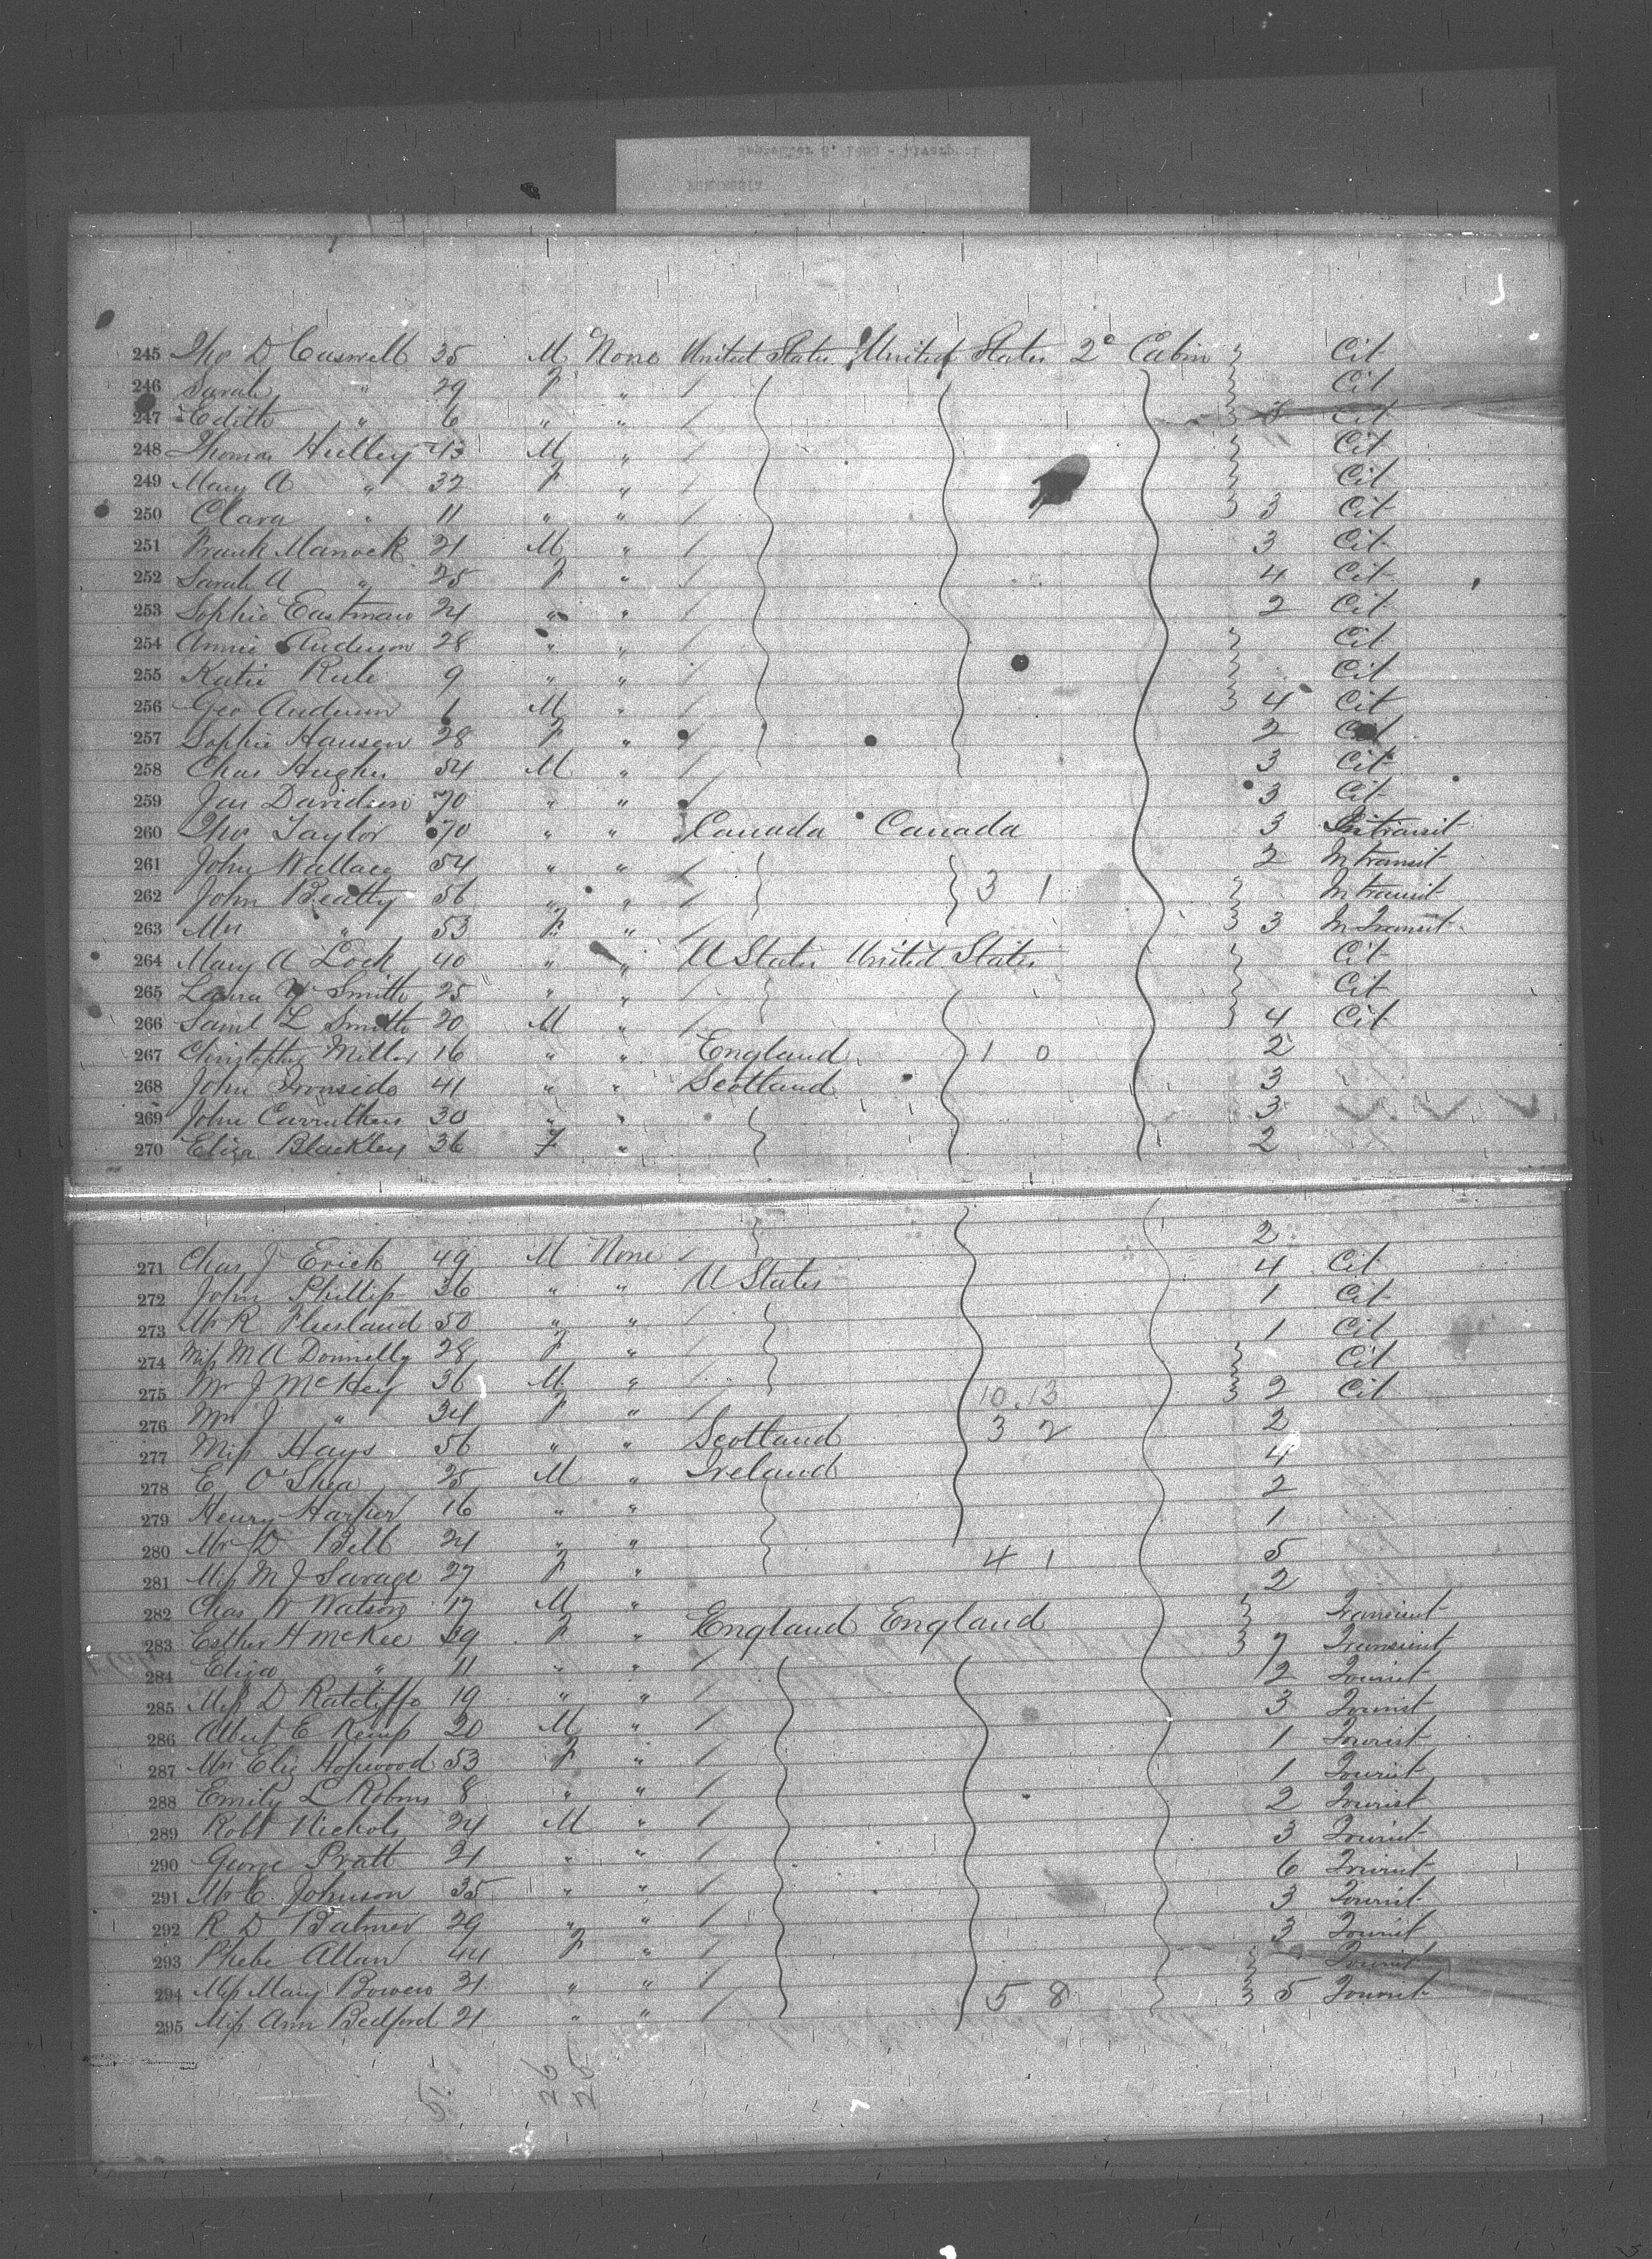 245 Tho D Caswell 35 M None United States United States 2ᵈ Cabin Cit
246 Sarah " 29 F " Cit
247 Edith " 6 " " 8 Cit
248 Thomas Hulley 43 M " Cit
249 Mary A " 32 F " Cit
250 Clara " 11 " " 3 Cit
251 Frank Manock 21 M " 3 Cit
252 Sarah A " 25 F " 4 Cit
253 Sophie Eastman 24 " " 2 Cit
254 Annie Anderson 28 " " Cit
255 Katie Rule 9 " " Cit
256 Geo Anderson 1 M " 4 Cit
257 Sophie Hansen 28 F " 2 Cit
258 Chas Hughes 54 M " 3 Cit
259 Jas Davidson 70 " " 3 Cit
260 Tho Taylor 70 " " Canada Canada 3 Intransit
261 John Wallace 54 " " 2 Intransit
262 John Beatty 56 " " 3 1 Intransit
263 Mrs " 53 F " 3 In Transit
264 Mary A Lock 40 " " U States United States Cit
265 Laura W Smith 25 " " Cit
266 Saml L Smith 20 M " 4 Cit
267 Christopher Miller 16 " " England 1 0 2
268 John Ironside 41 " " Scotland 3
269 John Carruthers 30 " " 3
270 Eliza Blackley 36 F " 2
2
271 Chas J Erick 49 M None 4 Cit
272 John Phillip 36 " " U States 1 Cit
273 Mr R 50 " " 1 Cit
274 Miss M A Donnelly 28 F " Cit
275 Mr J McKey 36 M " 10.13 2 Cit
276 Mrs J " 34 F " 3 2 2
277 Miss Hays 56 " " Scotland 4
278 E O'Shea 25 M " Ireland 2
279 Henry Harper 16 " " 1
280 Mr D Bell 24 " " 4 1 5
281 Miss M J Savage 27 F " 2
282 Chas W Watson 17 M " Transient
283 Esther H McKee 39 F " England England 7 Transient
284 Eliza " 11 " " 2 Tourist
285 Miss D Ratcliffe 19 " " 3 Tourist
286 Albert E Kemp 20 M " 1 Tourist
287 Mrs Eliz Hopwood 53 F " 1 Tourist
288 Emily L Robins 8 " " 2 Tourist
289 Robt Nichols 24 M " 3 Tourist
290 George Pratt 21 " " 6 Tourist
291 Mr C. Johnson 35 " " 3 Tourist
292 R D 29 " " 3 Tourist
293 Phebe Allan 44 F " Tourist
294 Miss Mary Bowers 31 " " 5 8 5 Tourist
295 Miss Ann Bedford 21 " "